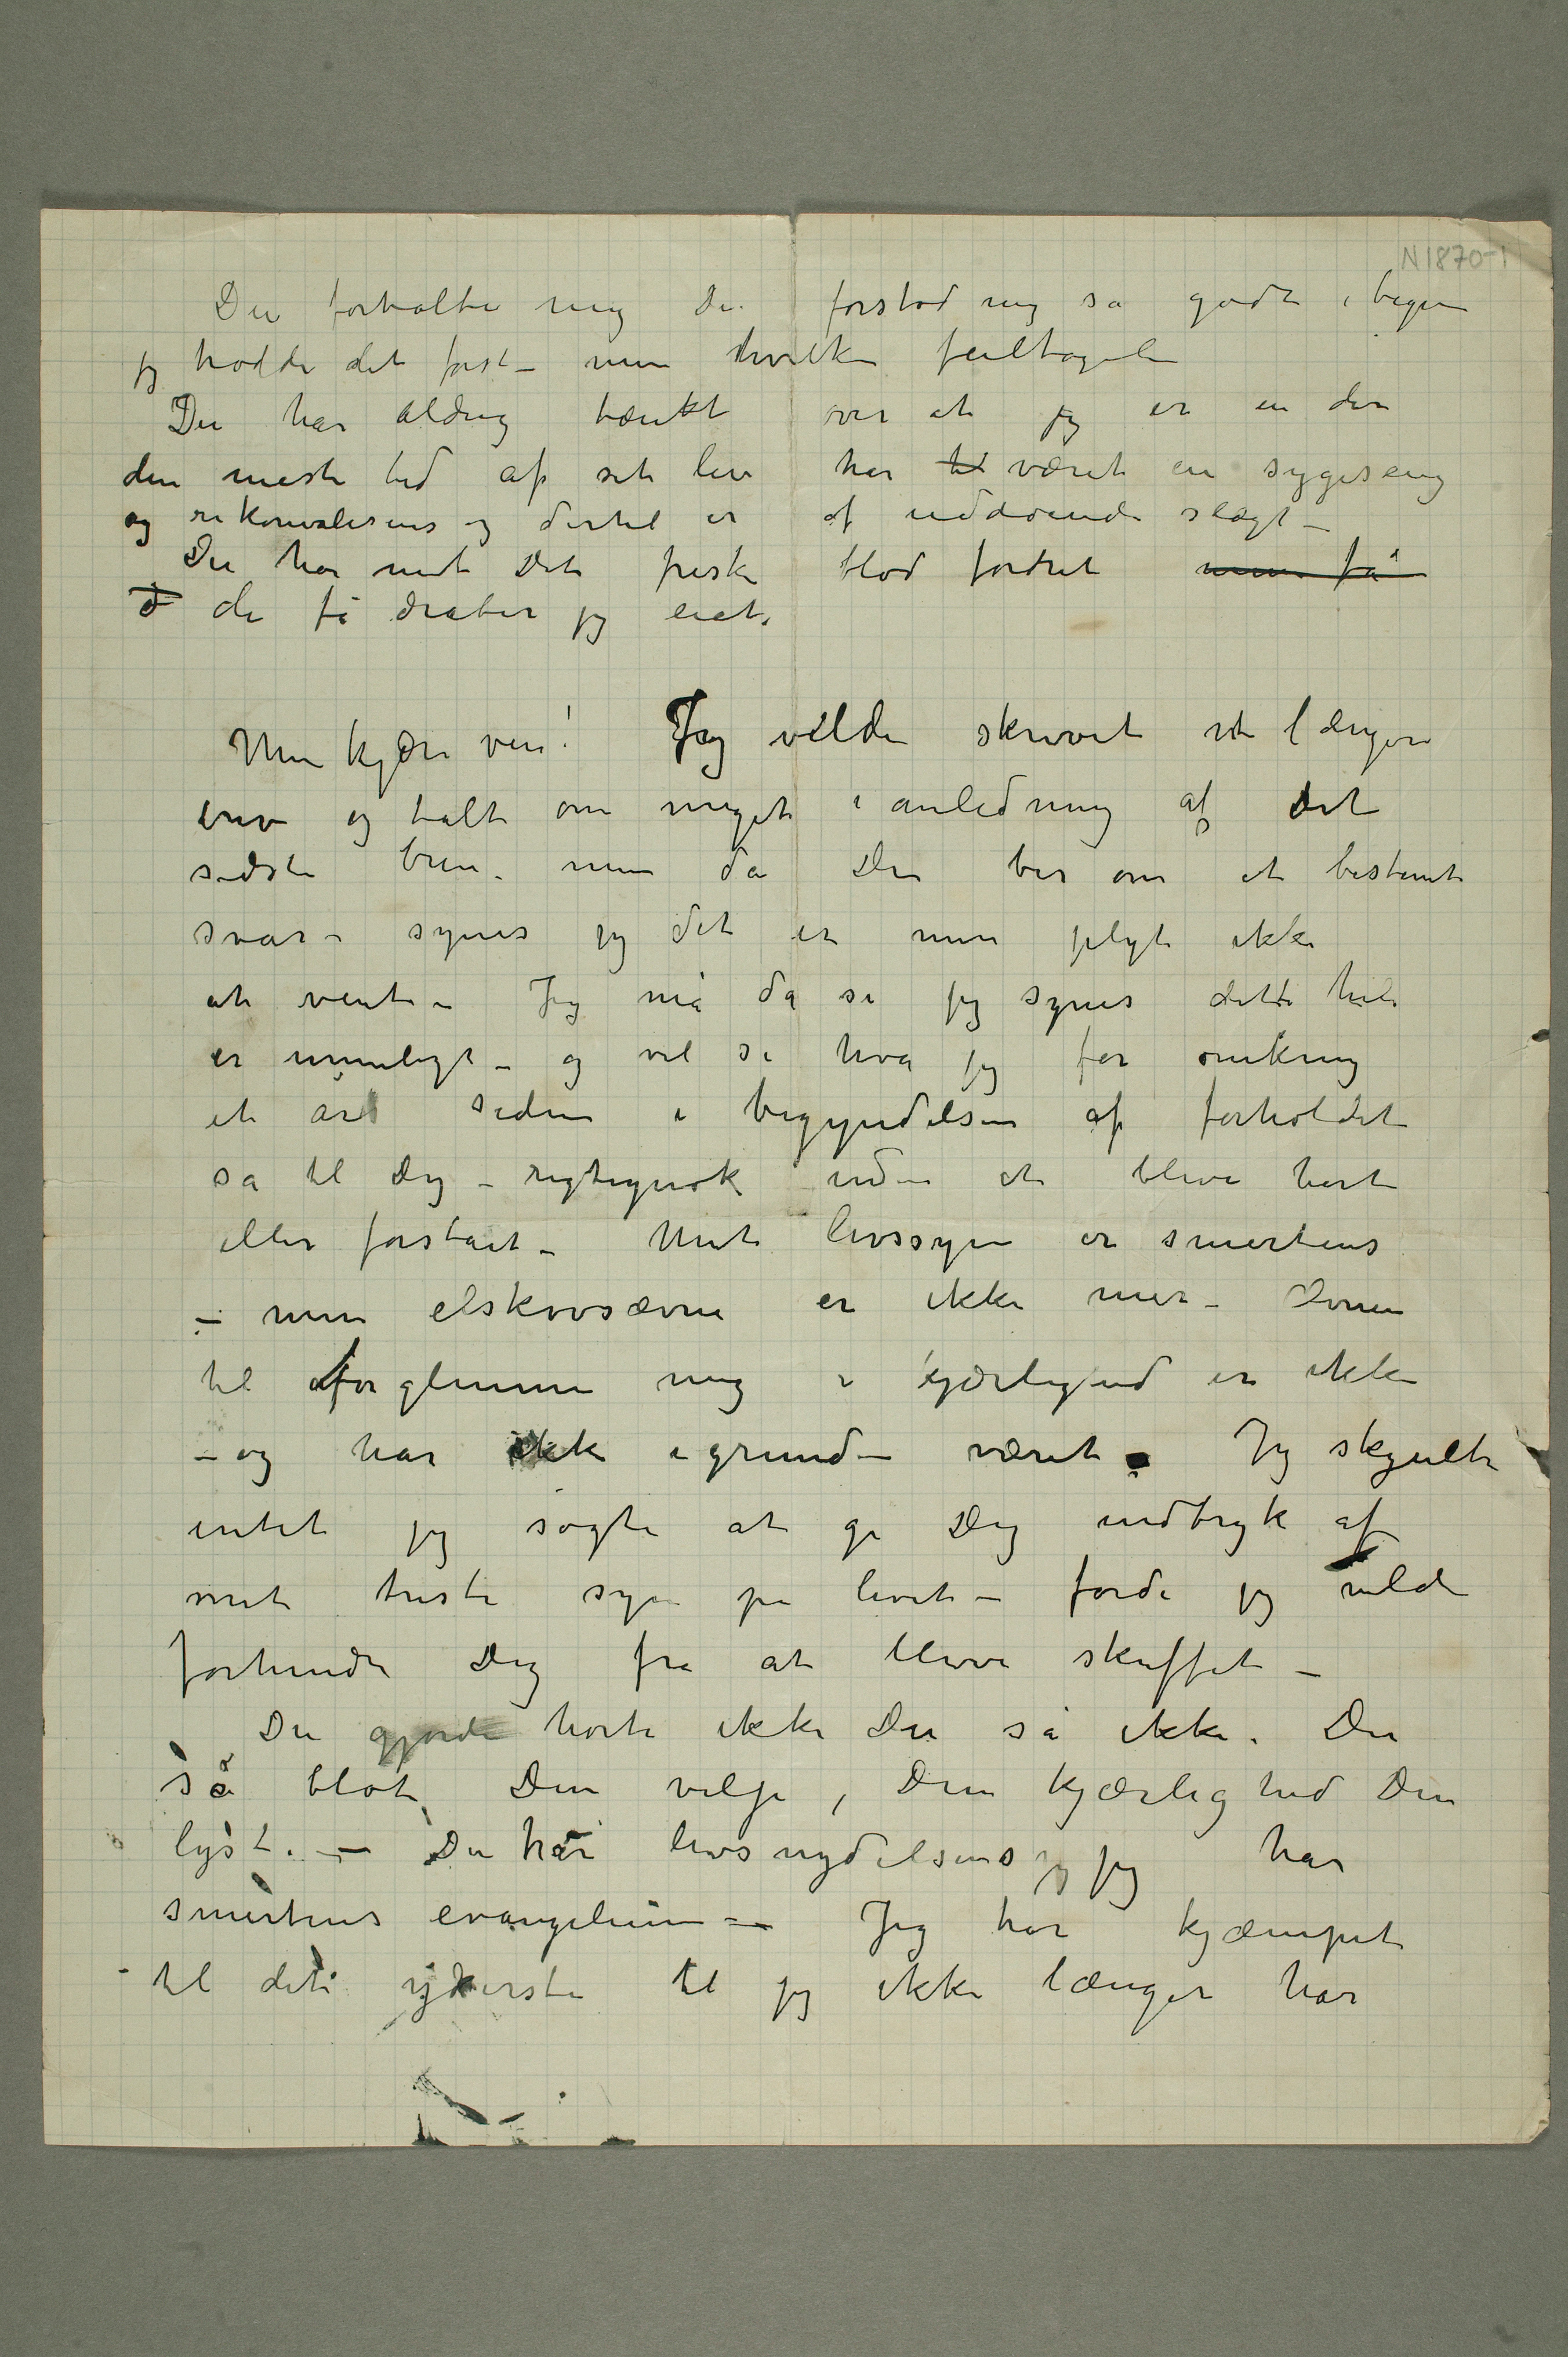 N1870-1
Du fortalte mig Du forstod mig så godt i begyn
jg trodde det først – men hvilken feiltagelse
Du har aldrig tænkt over at jeg er en der
den meste tid af sit liv har til været en sygeseng
og rekonvalesens og dertil er af uddøende slægt –
Du har med Dit friske blod fordret men få
d de få dråber jeg eiet.
Min kjære ven! Jeg vilde skrevet et længere
brev og talt om meget i anledning af Dit
sidste brev. men da Du ber om et bestemt
svar – synes jeg det er min pligt ikke
at vente – Jeg må da si jeg synes dette hele
er umuligt – og vil si hva jeg for omkring
et år siden i begyndelsen af forholdet
sa til Dig – rigtignok uden at blive hørt
eller forstået – Mit livssyn er smertens
– min elskovsævne er ikke mer – Evnen
til at forglemme mig i kjærlighed er ikke
– og har ikke igrunden været. Jeg skjulte
intet jeg søgte at gi Dig indtryk af
mit triste syn på livet – fordi jeg vilde
forhindre Dig fra at blive skuffet –
Du gjorde hørte ikke Du så ikke. Du
så blot Din vilje, Din kjærlighed Din
lyst. – Du har livsnydelsens jg jeg har
smertens evangelium – Jeg har kjæmpet
til det yderste til jeg ikke længer har